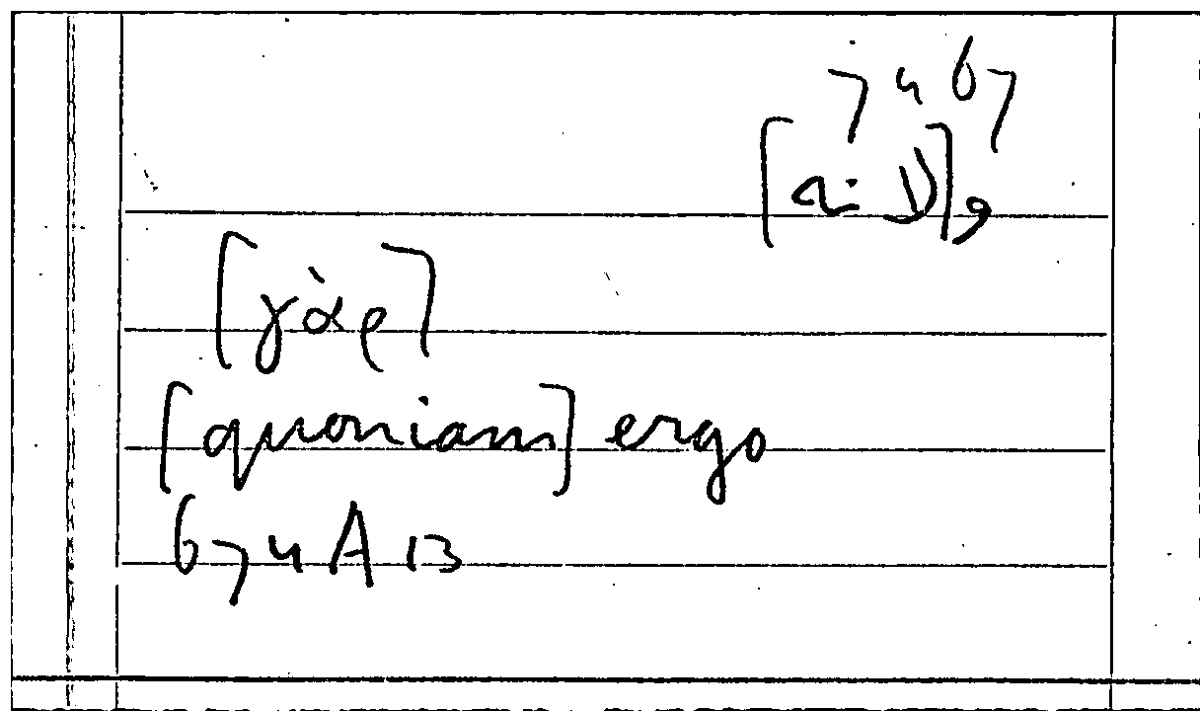 7467
[a: D],
[γὰρ]
[quoniam] ergo
674A13